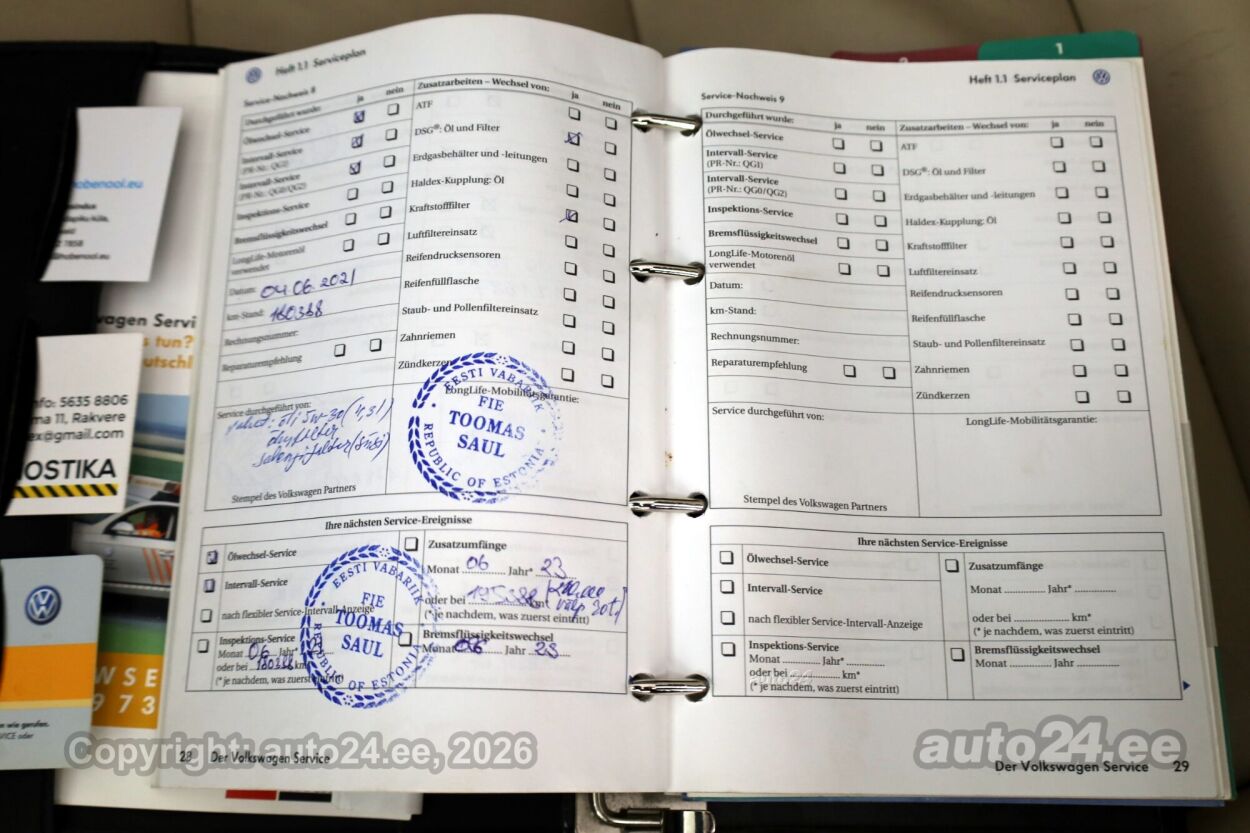 Heft 1.1 Serviceplan
Service-Nachweis 8
Durchgeführt wurde:
ja
nein
Ölwechsel-Service
Intervall-Service
(PR-Nr.: QG1)
Intervall-Service
(PR-Nr.: QG0/QG2)
Inspektions-Service
Bremsflüssigkeitswechsel
LongLife-Motorenöl
verwendet
Datum: 04.06.2021
km-Stand: 180388
Rechnungsnummer:
Reparaturempfehlung
Zusatzarbeiten – Wechsel von:
ja
nein
ATF
DSG®: Öl und Filter
Erdgasbehälter und -leitungen
Haldex-Kupplung: Öl
Kraftstofffilter
Luftfiltereinsatz
Reifendrucksensoren
Reifenfüllflasche
Staub- und Pollenfiltereinsatz
Zahnriemen
Zündkerzen
Service durchgeführt von:
õli 5w-30
õlifilter
Stempel des Volkswagen Partners
LongLife-Mobilitätsgarantie:
EESTI VABARIIK
FIE
TOOMAS
SAUL
REPUBLIC OF ESTONIA
Ihre nächsten Service-Ereignisse
Ölwechsel-Service
Intervall-Service
nach flexibler Service-Intervall-Anzeige
Inspektions-Service
Monat 06 Jahr*
oder bei km*
(* je nachdem, was zuerst eintritt)
Zusatzumfänge
Monat 06 Jahr* 23
oder bei km*
(* je nachdem, was zuerst eintritt)
Bremsflüssigkeitswechsel
Monat 06 Jahr 23
EESTI VABARIIK
FIE
TOOMAS
SAUL
REPUBLIC OF ESTONIA
28 Der Volkswagen Service
1
Heft 1.1 Serviceplan
Service-Nachweis 9
Durchgeführt wurde:
ja
nein
Ölwechsel-Service
Intervall-Service
(PR-Nr.: QG1)
Intervall-Service
(PR-Nr.: QG0/QG2)
Inspektions-Service
Bremsflüssigkeitswechsel
LongLife-Motorenöl
verwendet
Datum:
km-Stand:
Rechnungsnummer:
Reparaturempfehlung
Zusatzarbeiten – Wechsel von:
ja
nein
ATF
DSG®: Öl und Filter
Erdgasbehälter und -leitungen
Haldex-Kupplung: Öl
Kraftstofffilter
Luftfiltereinsatz
Reifendrucksensoren
Reifenfüllflasche
Staub- und Pollenfiltereinsatz
Zahnriemen
Zündkerzen
Service durchgeführt von:
Stempel des Volkswagen Partners
LongLife-Mobilitätsgarantie:
Ihre nächsten Service-Ereignisse
Ölwechsel-Service
Intervall-Service
nach flexibler Service-Intervall-Anzeige
Inspektions-Service
Monat Jahr*
oder bei km*
(* je nachdem, was zuerst eintritt)
Zusatzumfänge
Monat Jahr*
oder bei km*
(* je nachdem, was zuerst eintritt)
Bremsflüssigkeitswechsel
Monat Jahr
Der Volkswagen Service 29
1858
wagen Servi
s tun?
utschl
nfo: 5635 8806
ma 11, Rakvere
ex@gmail.com
OSTIKA
WSE
973
Copyright auto24.ee, 2026
auto24.ee